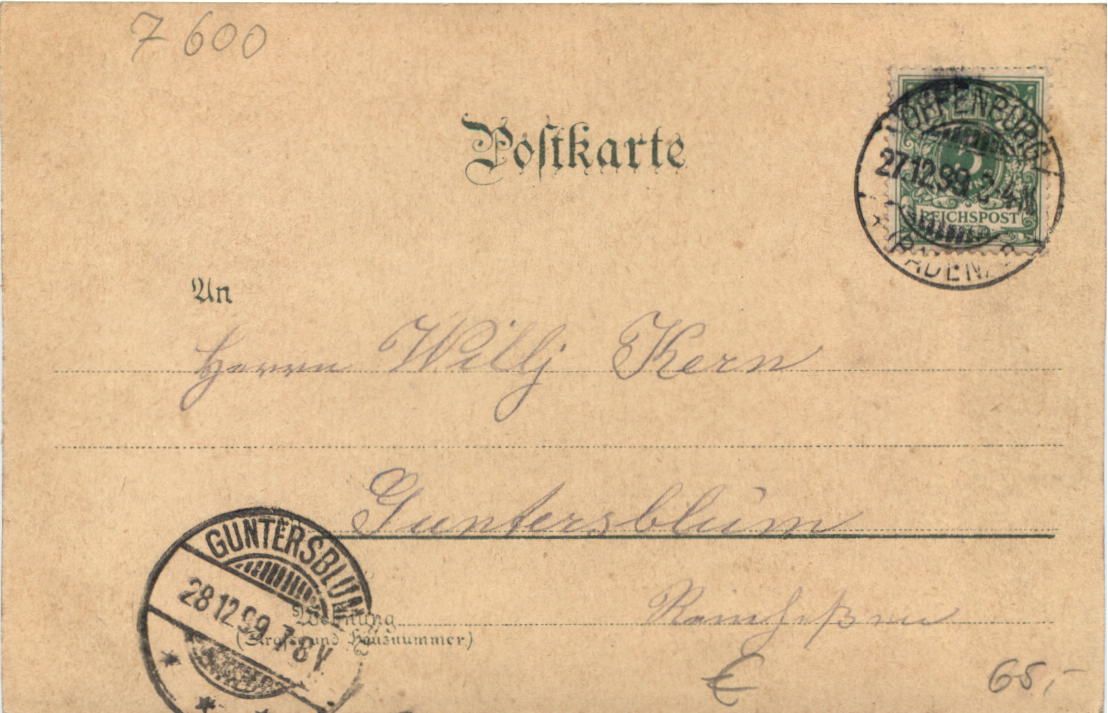 7600
Postkarte
OFFENBURG
27.12.99. 3-4 N.
(BADEN)
5
REICHSPOST
An
Herrn Willj Kern
Guntersblum
GUNTERSBLUM
28.12.99. 7-8 V
Wohnung
(Straße und Hausnummer)
Rheinhessen
€ 65,-